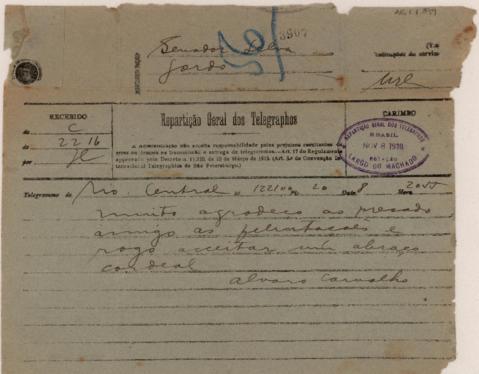 3907
Senador
Gordo
ENDEREÇO
RECEBIDO
de C
às 22 16
por
Repartição Geral dos Telegraphos
A Administração não aceita responsabilidade pelos prejuizos resultantes de
erros ou demora na transmissão e entrega de telegrammas.—Art. 17 do Regulamento
approvado pelo Decreto n. 11.520, de 10 de Março de 1915. (Art. 3.º da Convenção In-
ternacional Telegraphica de São Petersburgo.)
CARIMBO
REPARTIÇÃO GERAL DOS TELEGRAPHOS
BRASIL
NOV 8 1918
ESTAÇÃO
LARGO DO MACHADO
Telegramma de Rio Central N. 20 Data 8 Hora
muito agradeço ao presado
amigo as felicitacoes e
rogo acceitar um abraço
cordeal
alvaro Carvalho